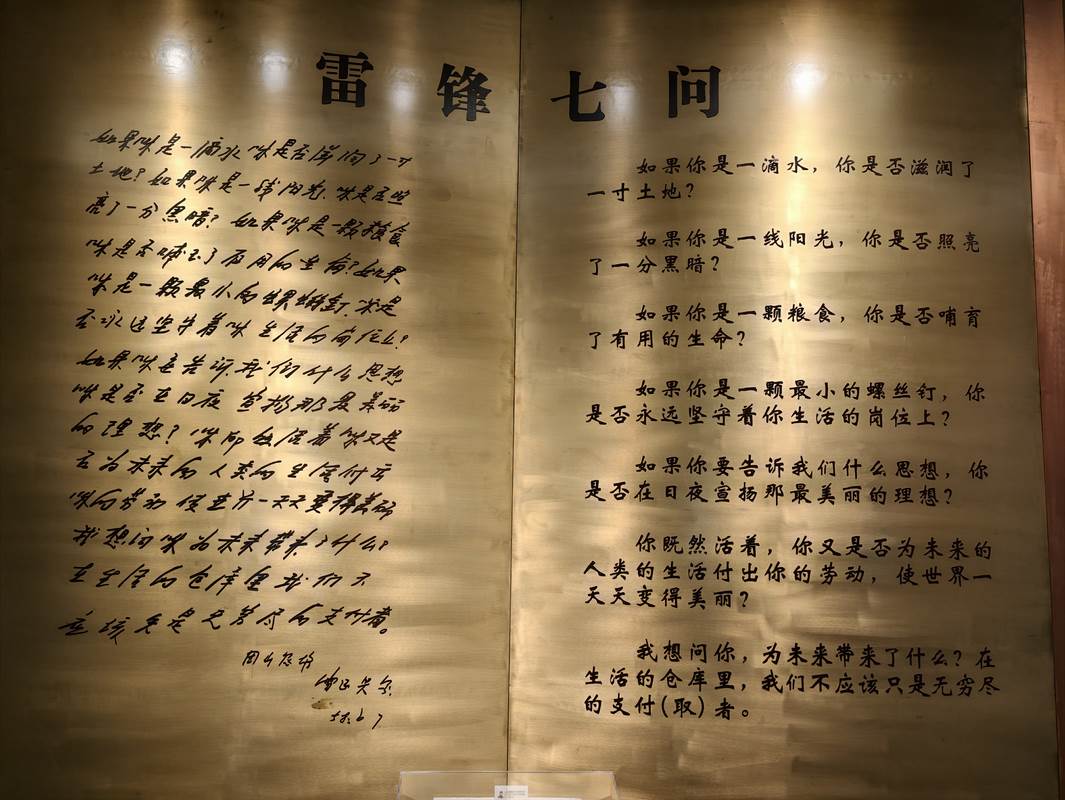 雷锋七问
如果你是一滴水你是否滋润了一寸
土地?如果你是一线阳光,你是否照
亮了一分黑暗?如果你是一颗粮食
你是否哺育了有用的生命?如果
你是一颗最小的螺丝钉,你是
否永远坚守着你生活的岗位上?
如果你要告诉我们什么思想
你是否在日夜宣扬那最美丽
的理想?你既然活着你又是
否为未来的人类的生活付出
你的劳动使世界一天天变得美丽
我想问你为未来带来了什么?
在生活的仓库里我们不
应该只是无穷尽的支付者。
如果你是一滴水,你是否滋润了
一寸土地?
如果你是一线阳光,你是否照亮
了一分黑暗?
如果你是一颗粮食,你是否哺育
了有用的生命?
如果你是一颗最小的螺丝钉,你
是否永远坚守着你生活的岗位上?
如果你要告诉我们什么思想,你
是否在日夜宣扬那最美丽的理想?
你既然活着,你又是否为未来的
人类的生活付出你的劳动,使世界一
天天变得美丽?
我想问你,为未来带来了什么?在
生活的仓库里,我们不应该只是无穷尽
的支付(取)者。